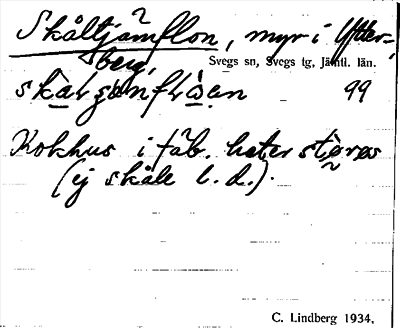 Skåltjämflon, myr i Ytter-
berg,
Svegs sn, Svegs tg, Jämtl. län.
99
Kokhus i fäb. heter
(ej skåle l. d.).
C. Lindberg 1934.